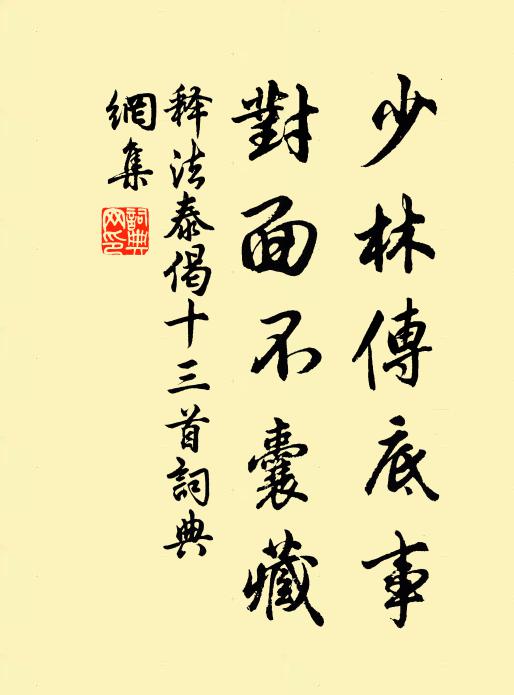 少林傳底事
對面不囊藏
释法泰偈十三首詞典
網集
詞典
网印